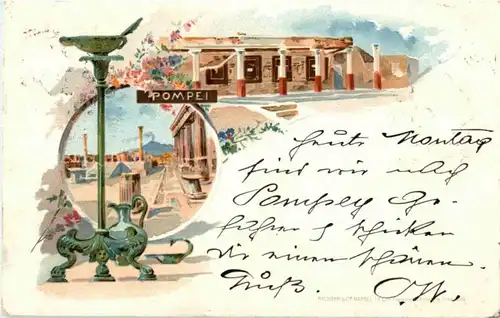 POMPEI
Heute Montag
sind wir nach
Pompey ge-
fahren & schicken
dir einen schönen
Gruß. O.W.
RICHTER & C° NAPOLI